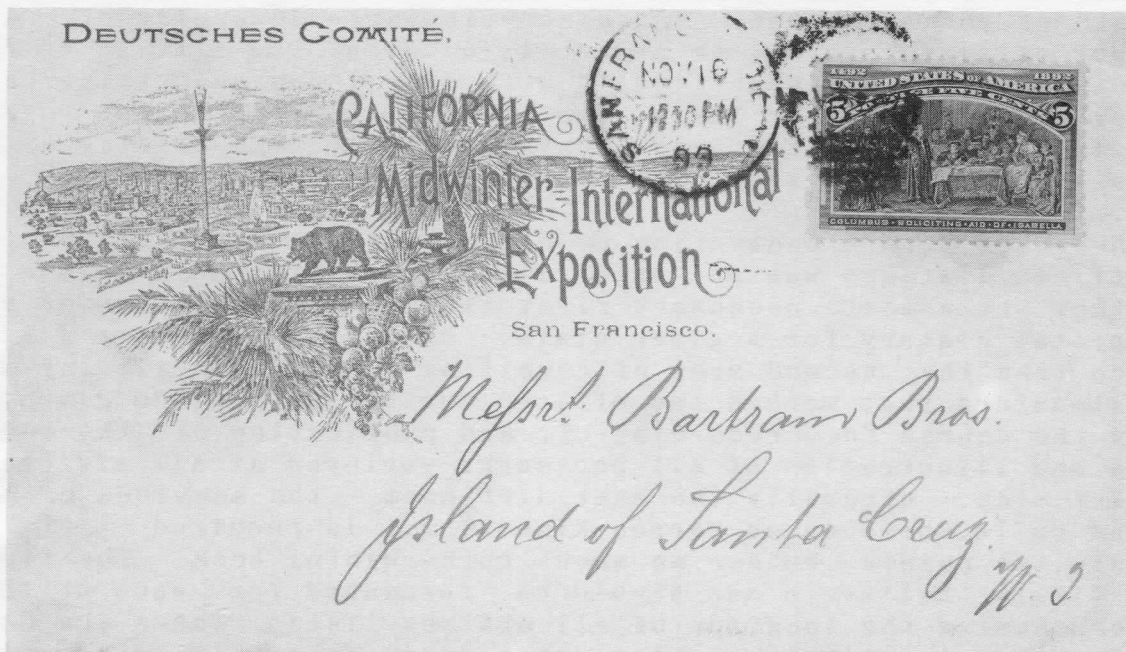 DEUTSCHES COMITÉ.
CALIFORNIA
Midwinter International
Exposition
San Francisco.
SAN FRANCISCO
NOV 16
12 30 PM
1892 1892
UNITED STATES OF AMERICA
5 FIVE CENTS 5
COLUMBUS · SOLICITING · AID · OF · ISABELLA
Messrs. Bartram Bros.
Island of Santa Cruz.
W. I